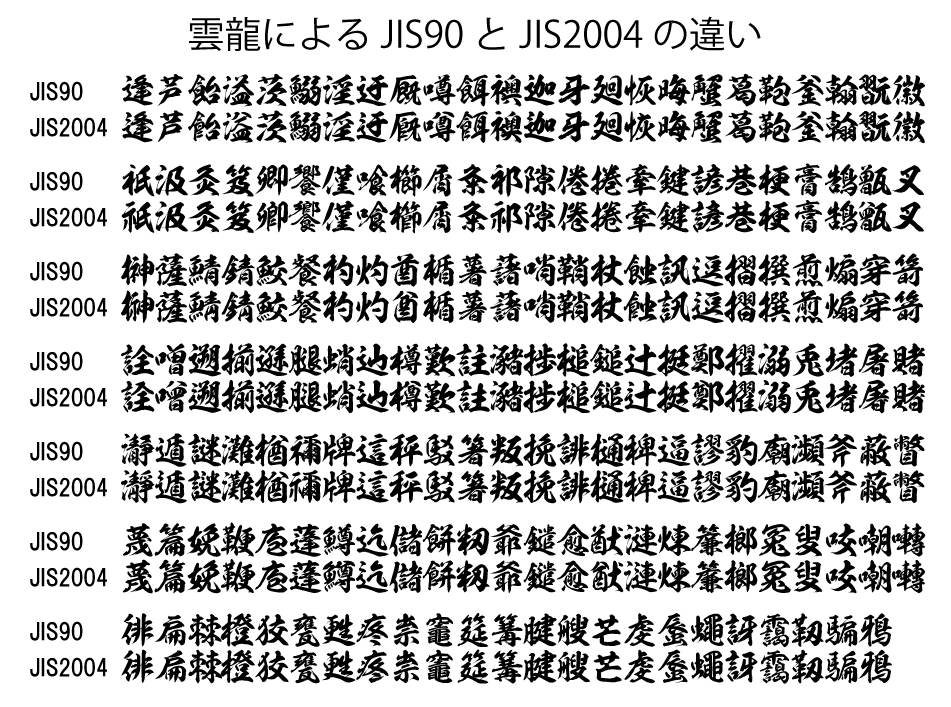 雲龍による JIS90 と JIS2004 の違い
JIS90 逢芦飴溢茨鰯淫迂厩噂餌襖迦牙廻恢晦蟹葛鞄釜翰翫徽
JIS2004 逢芦飴溢茨鰯淫迂厩噂餌襖迦牙廻恢晦蟹葛鞄釜翰翫徽
JIS90 祇汲灸笈卿饗僅喰櫛屑粂祁隙倦捲牽鍵諺巷梗膏鵠甑叉
JIS2004 祇汲灸笈卿饗僅喰櫛屑粂祁隙倦捲牽鍵諺巷梗膏鵠甑叉
JIS90 榊薩鯖錆鮫餐杓灼酋楯薯藷哨鞘杖蝕訊逗摺撰煎煽穿箭
JIS2004 榊薩鯖錆鮫餐杓灼酋楯薯藷哨鞘杖蝕訊逗摺撰煎煽穿箭
JIS90 詮噌遡揃遜腿蛸辿樽歎註瀦捗槌鎚辻挺鄭擢溺兎堵屠賭
JIS2004 詮噌遡揃遜腿蛸辿樽歎註瀦捗槌鎚辻挺鄭擢溺兎堵屠賭
JIS90 瀞遁謎灘楢禰牌這秤駁箸叛挽誹樋稗逼謬豹廟瀕斧蔽瞥
JIS2004 瀞遁謎灘楢禰牌這秤駁箸叛挽誹樋稗逼謬豹廟瀕斧蔽瞥
JIS90 蔑篇娩鞭庖蓬鱒迄儲餅籾爺鑓愈猷漣煉簾榔冤叟咬嘲囀
JIS2004 蔑篇娩鞭庖蓬鱒迄儲餅籾爺鑓愈猷漣煉簾榔冤叟咬嘲囀
JIS90 徘扁棘橙狡甕甦疼祟竈筵篝腱艘芒虔蜃蠅訝靄靱騙鴉
JIS2004 徘扁棘橙狡甕甦疼祟竈筵篝腱艘芒虔蜃蠅訝靄靱騙鴉